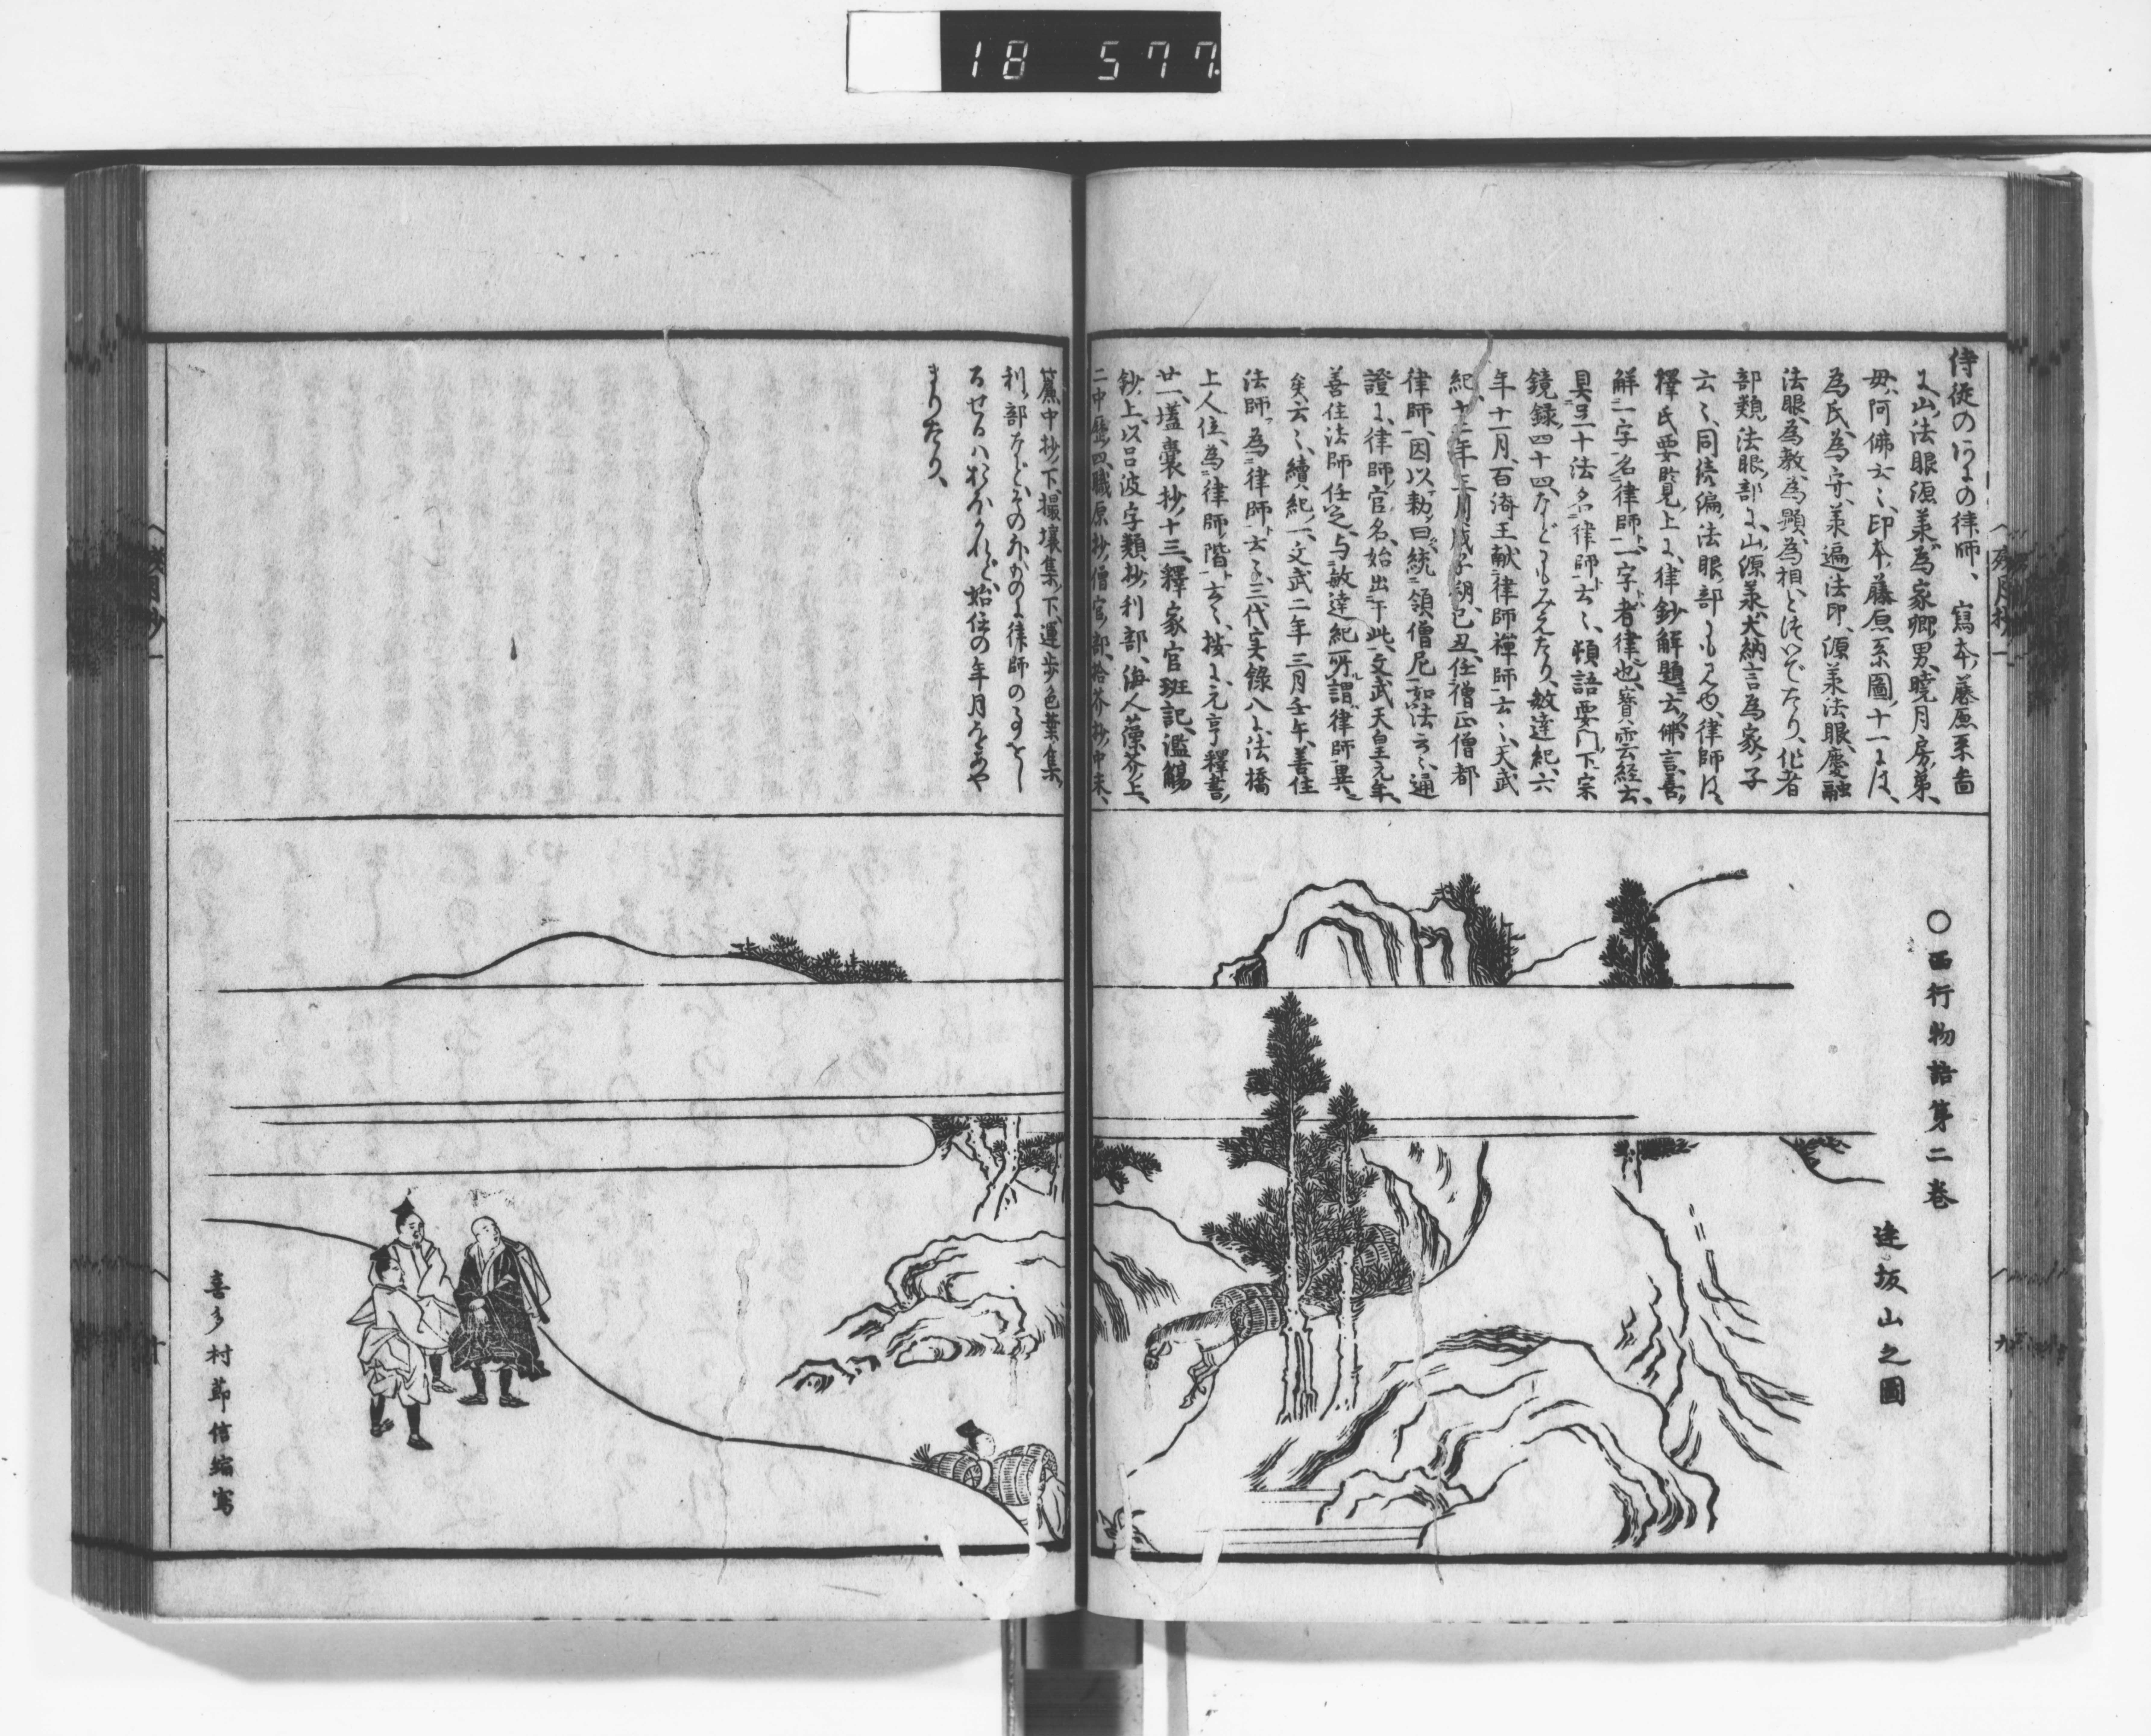 18 577.
侍従のひよの律師、寫本、藤原系畨
に、山法眼源羕、為家卿男、曉月房弟、
母阿佛云〻、印本、藤原系圖、十一には、
為氏、為守、羕遍法印、源羕法眼、慶融
法眼、為教、為顕、為相、とついでたり、作者
部類、法眼部に、山源羕、大納言為家子
云〻、同続編、法眼部
釋氏要覧、上に、律鈔解題云、佛言、善
解一字名律師、一字者律也、寳雲経云、
具三十法名律師云〻、
鏡録、四十四、などにもみえたり、敏達紀、六
年十一月、百済王献律師禅師云〻、天武
紀、十二年三月戊子朔己丑、任僧正僧都
律師、因以勅曰、統領僧尼如法云〻、通
證に、律師、官名、始出于此、文武天皇元年、
善住法師任之、与敏達紀所謂律師異
矣云〻、續紀、一、文武二年三月壬午、善住
法師為律師云〻、三代実録八に、法橋
上人位、為律師階云〻、按に、元亨釋書、
廿一、壒嚢抄、十三、釋家官班記、濫觴
鈔、上、以呂波字類抄、利部、海人藻芥、上、
二中歴、四、職原抄、僧官部、拾芥抄、中末、
簾中抄、下、撮壌集、下、運歩色葉集、
利部などそのほかのに律師の事をし
るせるはおほかれど、始任の年月をあや
まりたり、
○西行物語第二巻
逢坂山之圖
喜多村節信縮寫
残月抄一
九
残月抄一
十